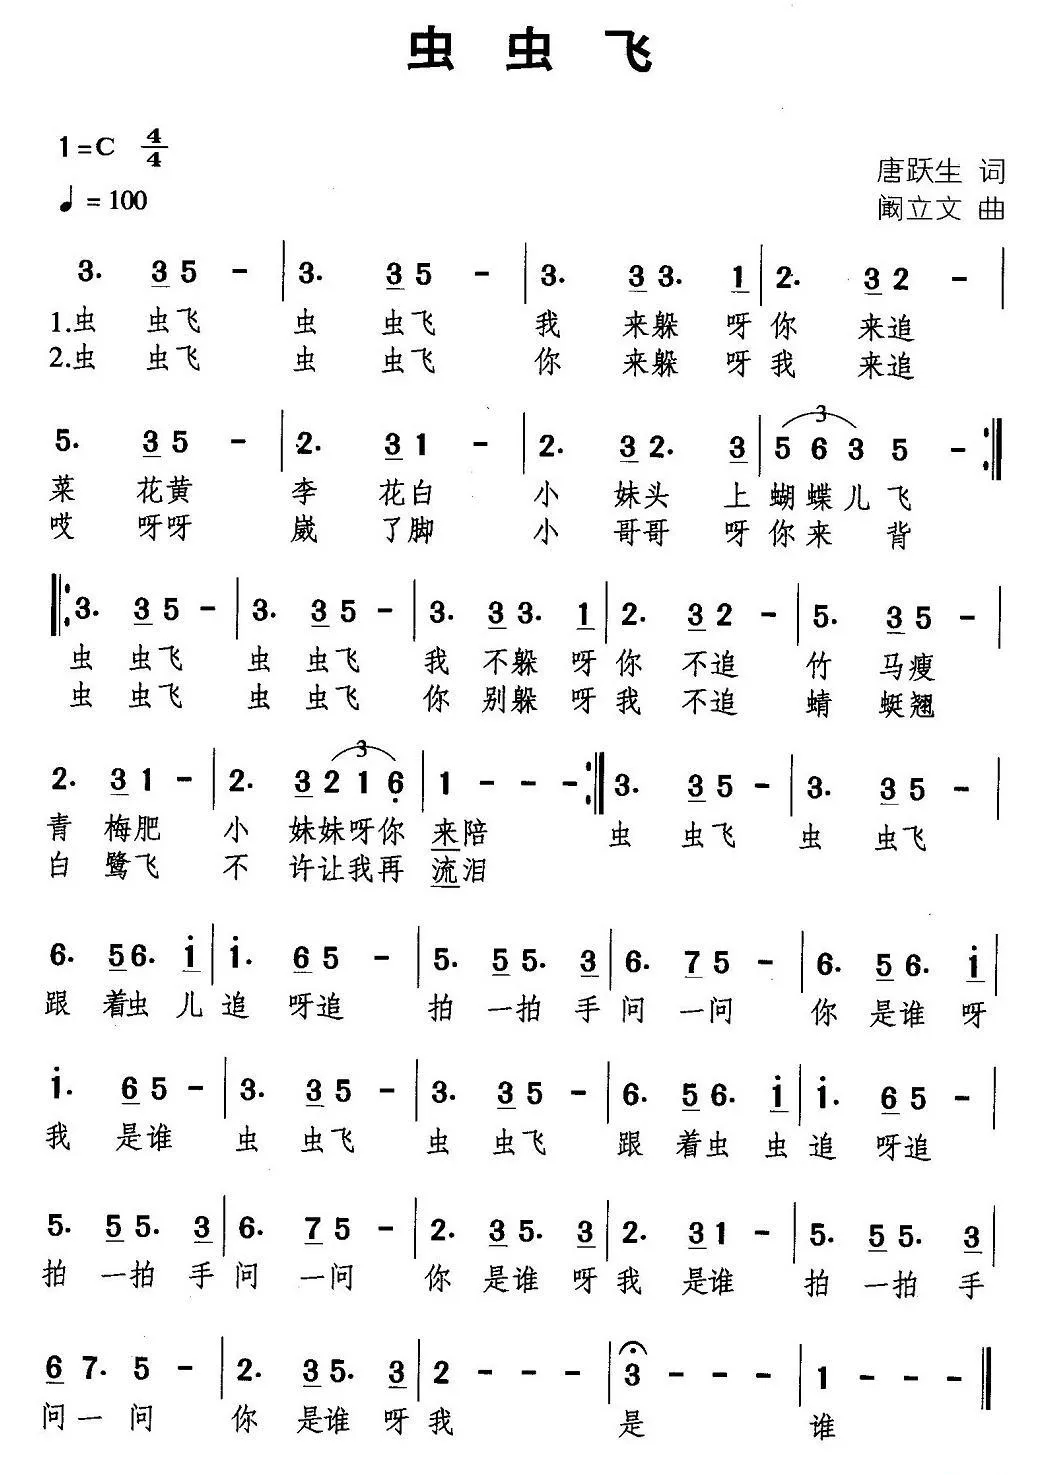 虫 虫 飞
1=C 4/4
♩=100
唐跃生 词
阚立文 曲
3. 3 5 - | 3. 3 5 - | 3. 3 3. 1 | 2. 3 2 - |
1.虫 虫飞 虫 虫飞 我 来躲 呀 你 来追
2.虫 虫飞 虫 虫飞 你 来躲 呀 我 来追
3
5. 3 5 - | 2. 3 1 - | 2. 3 2. 3 | 5 6 3 5 - :|
菜 花黄 李 花白 小 妹头 上 蝴蝶儿 飞
哎 呀呀 崴 了脚 小 哥哥 呀 你来 背
|: 3. 3 5 - | 3. 3 5 - | 3. 3 3. 1 | 2. 3 2 - | 5. 3 5 - |
虫 虫飞 虫 虫飞 我 不躲 呀 你 不追 竹 马瘦
虫 虫飞 虫 虫飞 你 别躲 呀 我 不追 蜻 蜓翘
3
2. 3 1 - | 2. 3 2 1 6̣ | 1 - - - :| 3. 3 5 - | 3. 3 5 - |
青 梅肥 小 妹妹呀你 来陪 虫 虫飞 虫 虫飞
白 鹭飞 不 许让我再 流泪
6. 5 6. i | i. 6 5 - | 5. 5 5. 3 | 6. 7 5 - | 6. 5 6. i |
跟 着虫 儿 追 呀追 拍 一拍 手 问 一问 你 是谁 呀
i. 6 5 - | 3. 3 5 - | 3. 3 5 - | 6. 5 6. i | i. 6 5 - |
我 是谁 虫 虫飞 虫 虫飞 跟 着虫 虫 追 呀追
5. 5 5. 3 | 6. 7 5 - | 2. 3 5. 3 | 2. 3 1 - | 5. 5 5. 3 |
拍 一拍 手 问 一问 你 是谁 呀 我 是谁 拍 一拍 手
6 7. 5 - | 2. 3 5. 3 | 2 - - - | 3 - - - | 1 - - - ‖
问 一 问 你 是谁 呀 我 是 谁